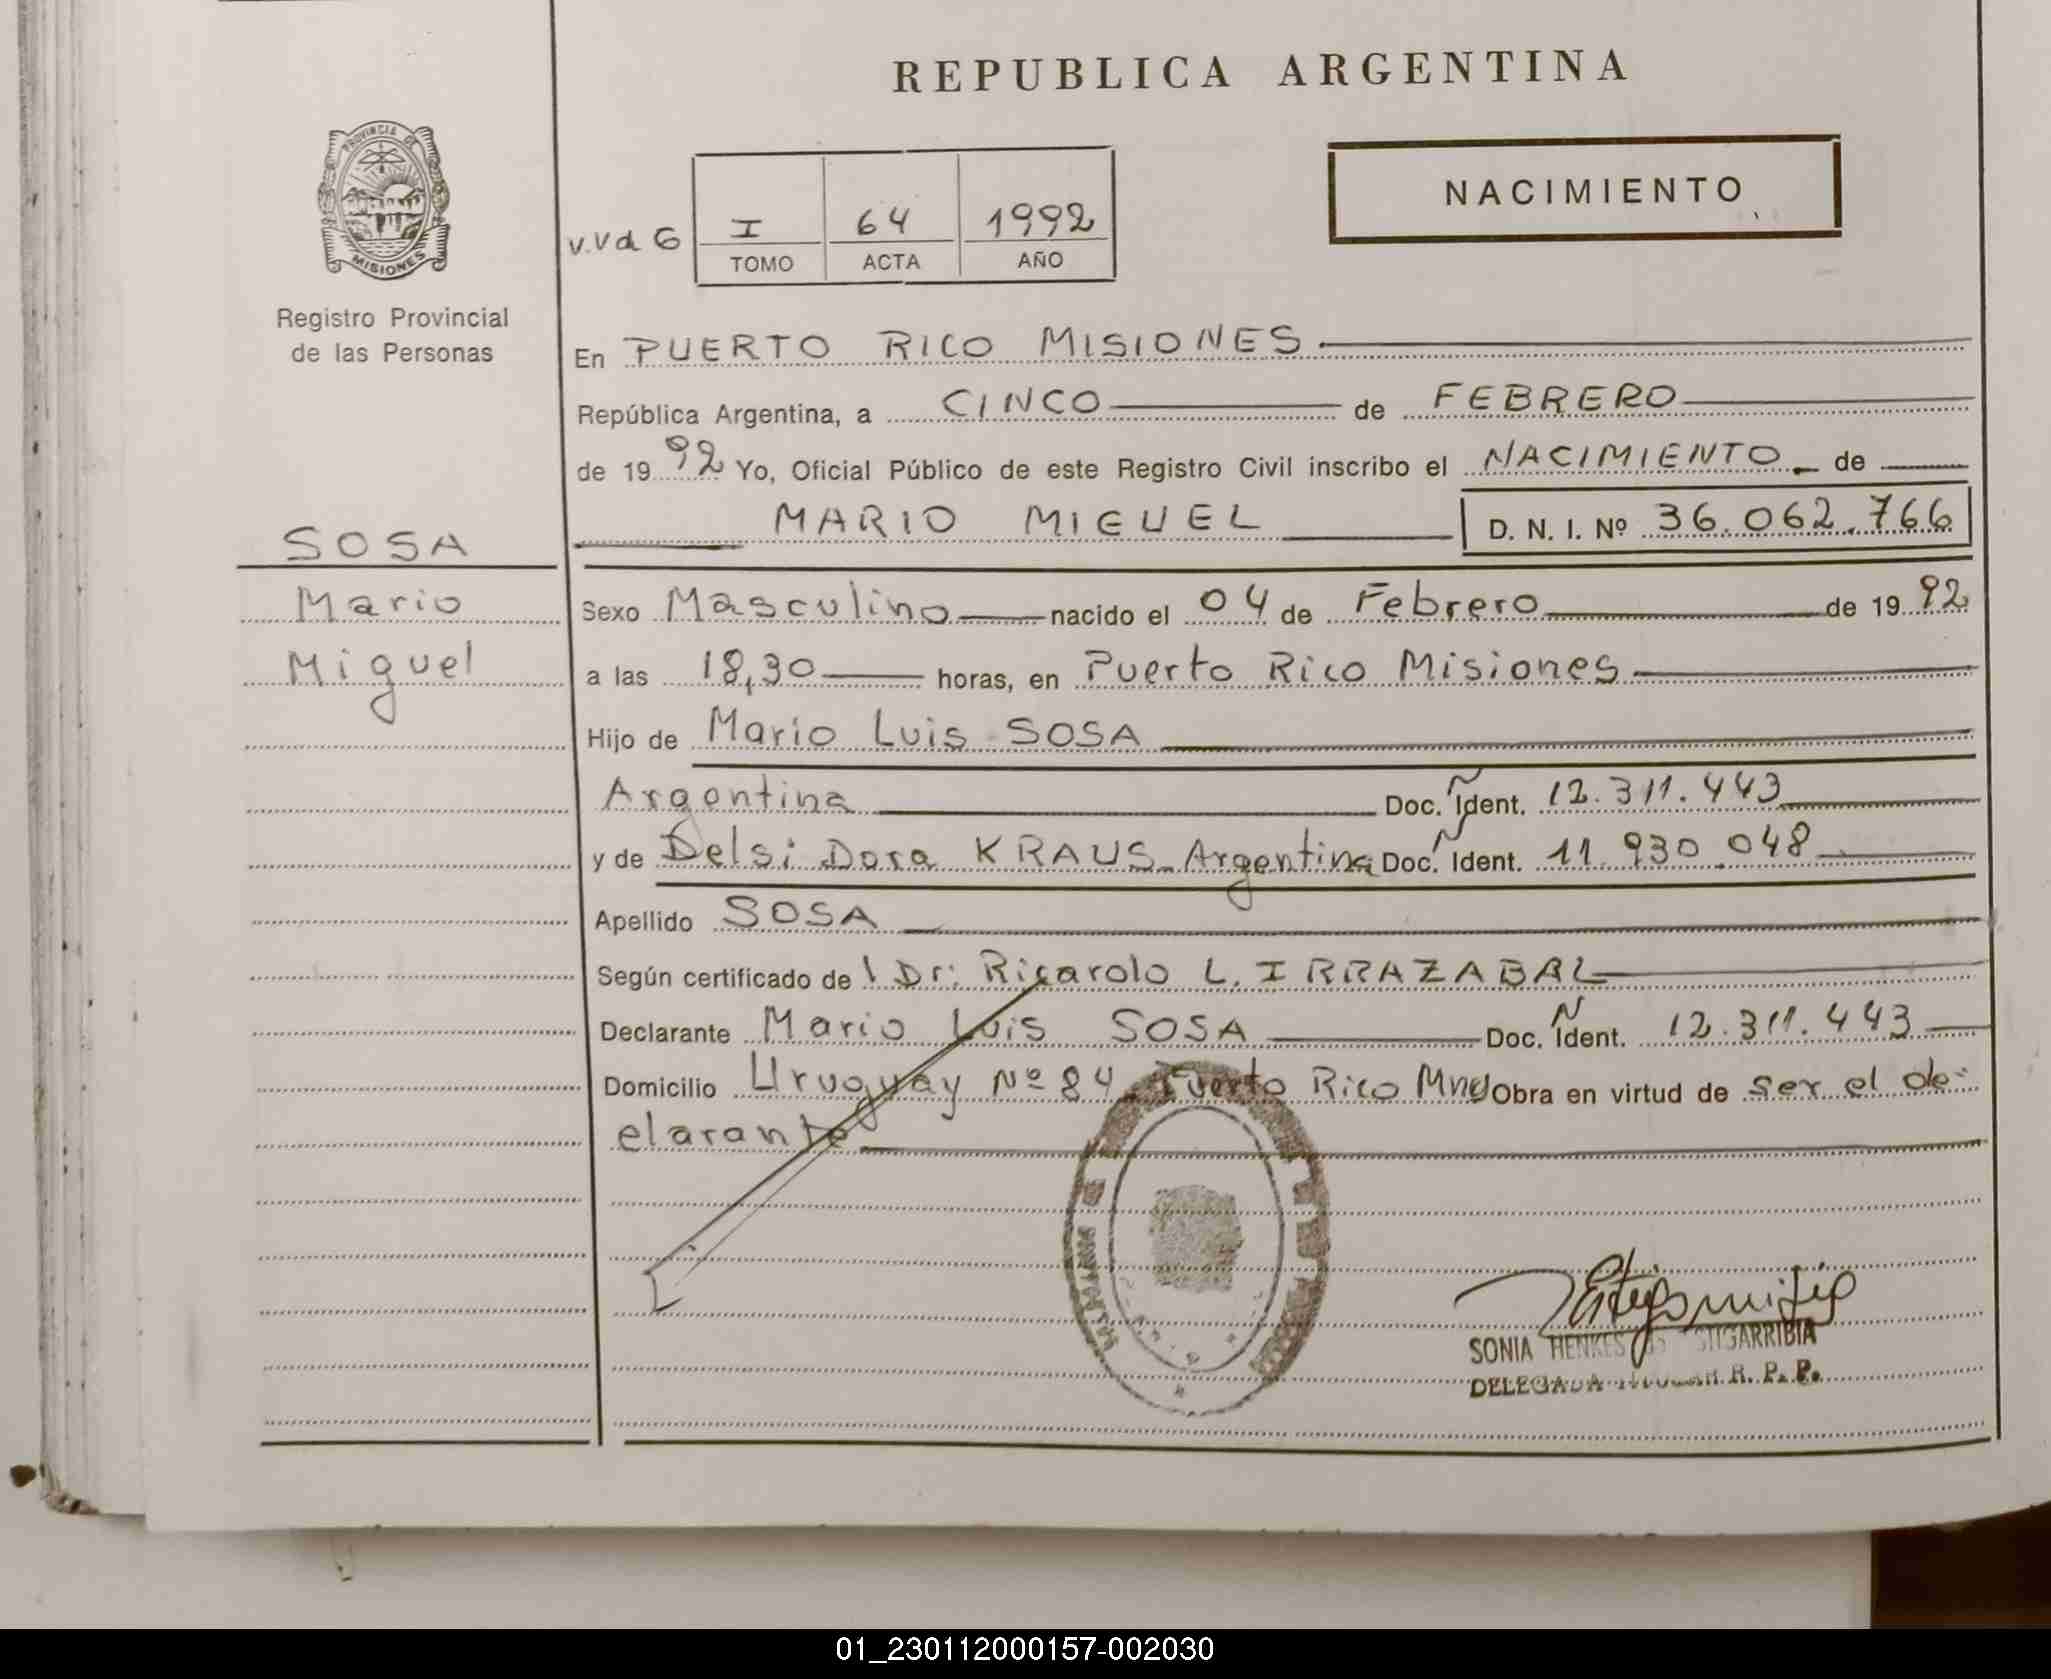 REPUBLICA ARGENTINA
PROVINCIA DE
MISIONES
NACIMIENTO
v.vd G
I 64 1992
TOMO ACTA AÑO
Registro Provincial
de las Personas
En PUERTO RICO MISIONES
República Argentina, a CINCO de FEBRERO
de 1992 Yo, Oficial Público de este Registro Civil inscribo el NACIMIENTO de
MARIO MIGUEL D. N. I. Nº 36.062.766
SOSA
Mario
Miguel
Sexo Masculino nacido el 04 de Febrero de 1992
a las 18,30 horas, en Puerto Rico Misiones
Hijo de Mario Luis SOSA
Argentina Doc. Ident. 12.311.443
y de Delsi Dora KRAUS Argentina Doc. Ident. 11 930.048
Apellido SOSA
Según certificado de l Dr: Ricardo L. IRRAZABAL
Declarante Mario Luis SOSA Doc. Ident. 12.311.443
Domicilio Uruguay Nº 84 Puerto Rico Mnes Obra en virtud de ser el de-
clarante
SONIA HENKES
DELEGADA R. P. P.
01_230112000157-002030